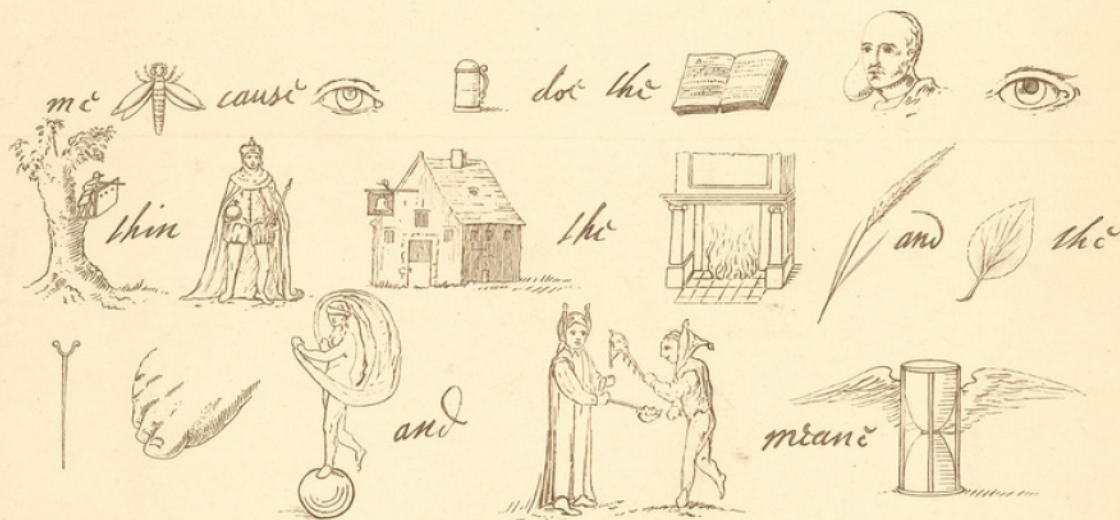 me cause doe the
thin the and the
and meane